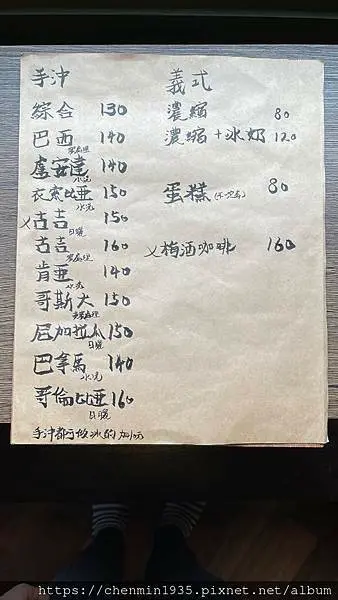 手沖
綜合 130
巴西 140
盧安達 140
水洗
衣索比亞 150
水洗
古吉 150
日曬
古吉 160
肯亞 140
水洗
哥斯大 150
尼加拉瓜 150
日曬
巴拿馬 140
水洗
哥倫比亞 160
日曬
手沖都可做冰的 加10元
義式
濃縮 80
濃縮+冰奶 120
蛋糕 80
梅酒咖啡 160
https://chenmin1935.pixnet.net/album